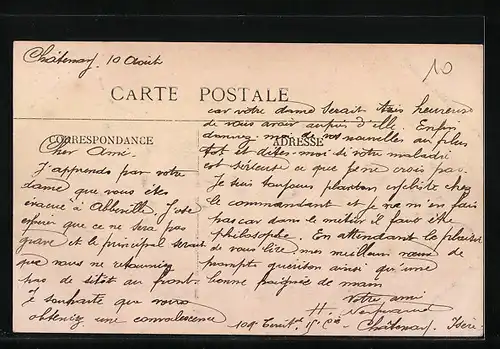 Châtenay 10 Août
10
CARTE POSTALE
CORRESPONDANCE
ADRESSE
Cher Ami
J'apprends par votre
dame que vous êtes
évacué à Abbeville. J'ose
espérer que ce ne sera pas
grave et le principal serait
que vous ne retourniez
pas de sitôt au front.
Je souhaite que vous
obteniez une convalescence
car votre dame serait très heureuse
de vous avoir auprès d'elle. Enfin
donnez-moi de vos nouvelles au plus
tôt et dites-moi si votre maladie
est sérieuse ce que je ne crois pas.
Je suis toujours planton cycliste chez
le commandant et je ne m'en fais
pas car dans le métier il faut être
philosophe. En attendant le plaisir
de vous lire, mes meilleurs vœux de
prompte guérison ainsi qu'une
bonne poignée de main
Votre ami
H.
109 Territ. 15 Cie Châtenay. Isère